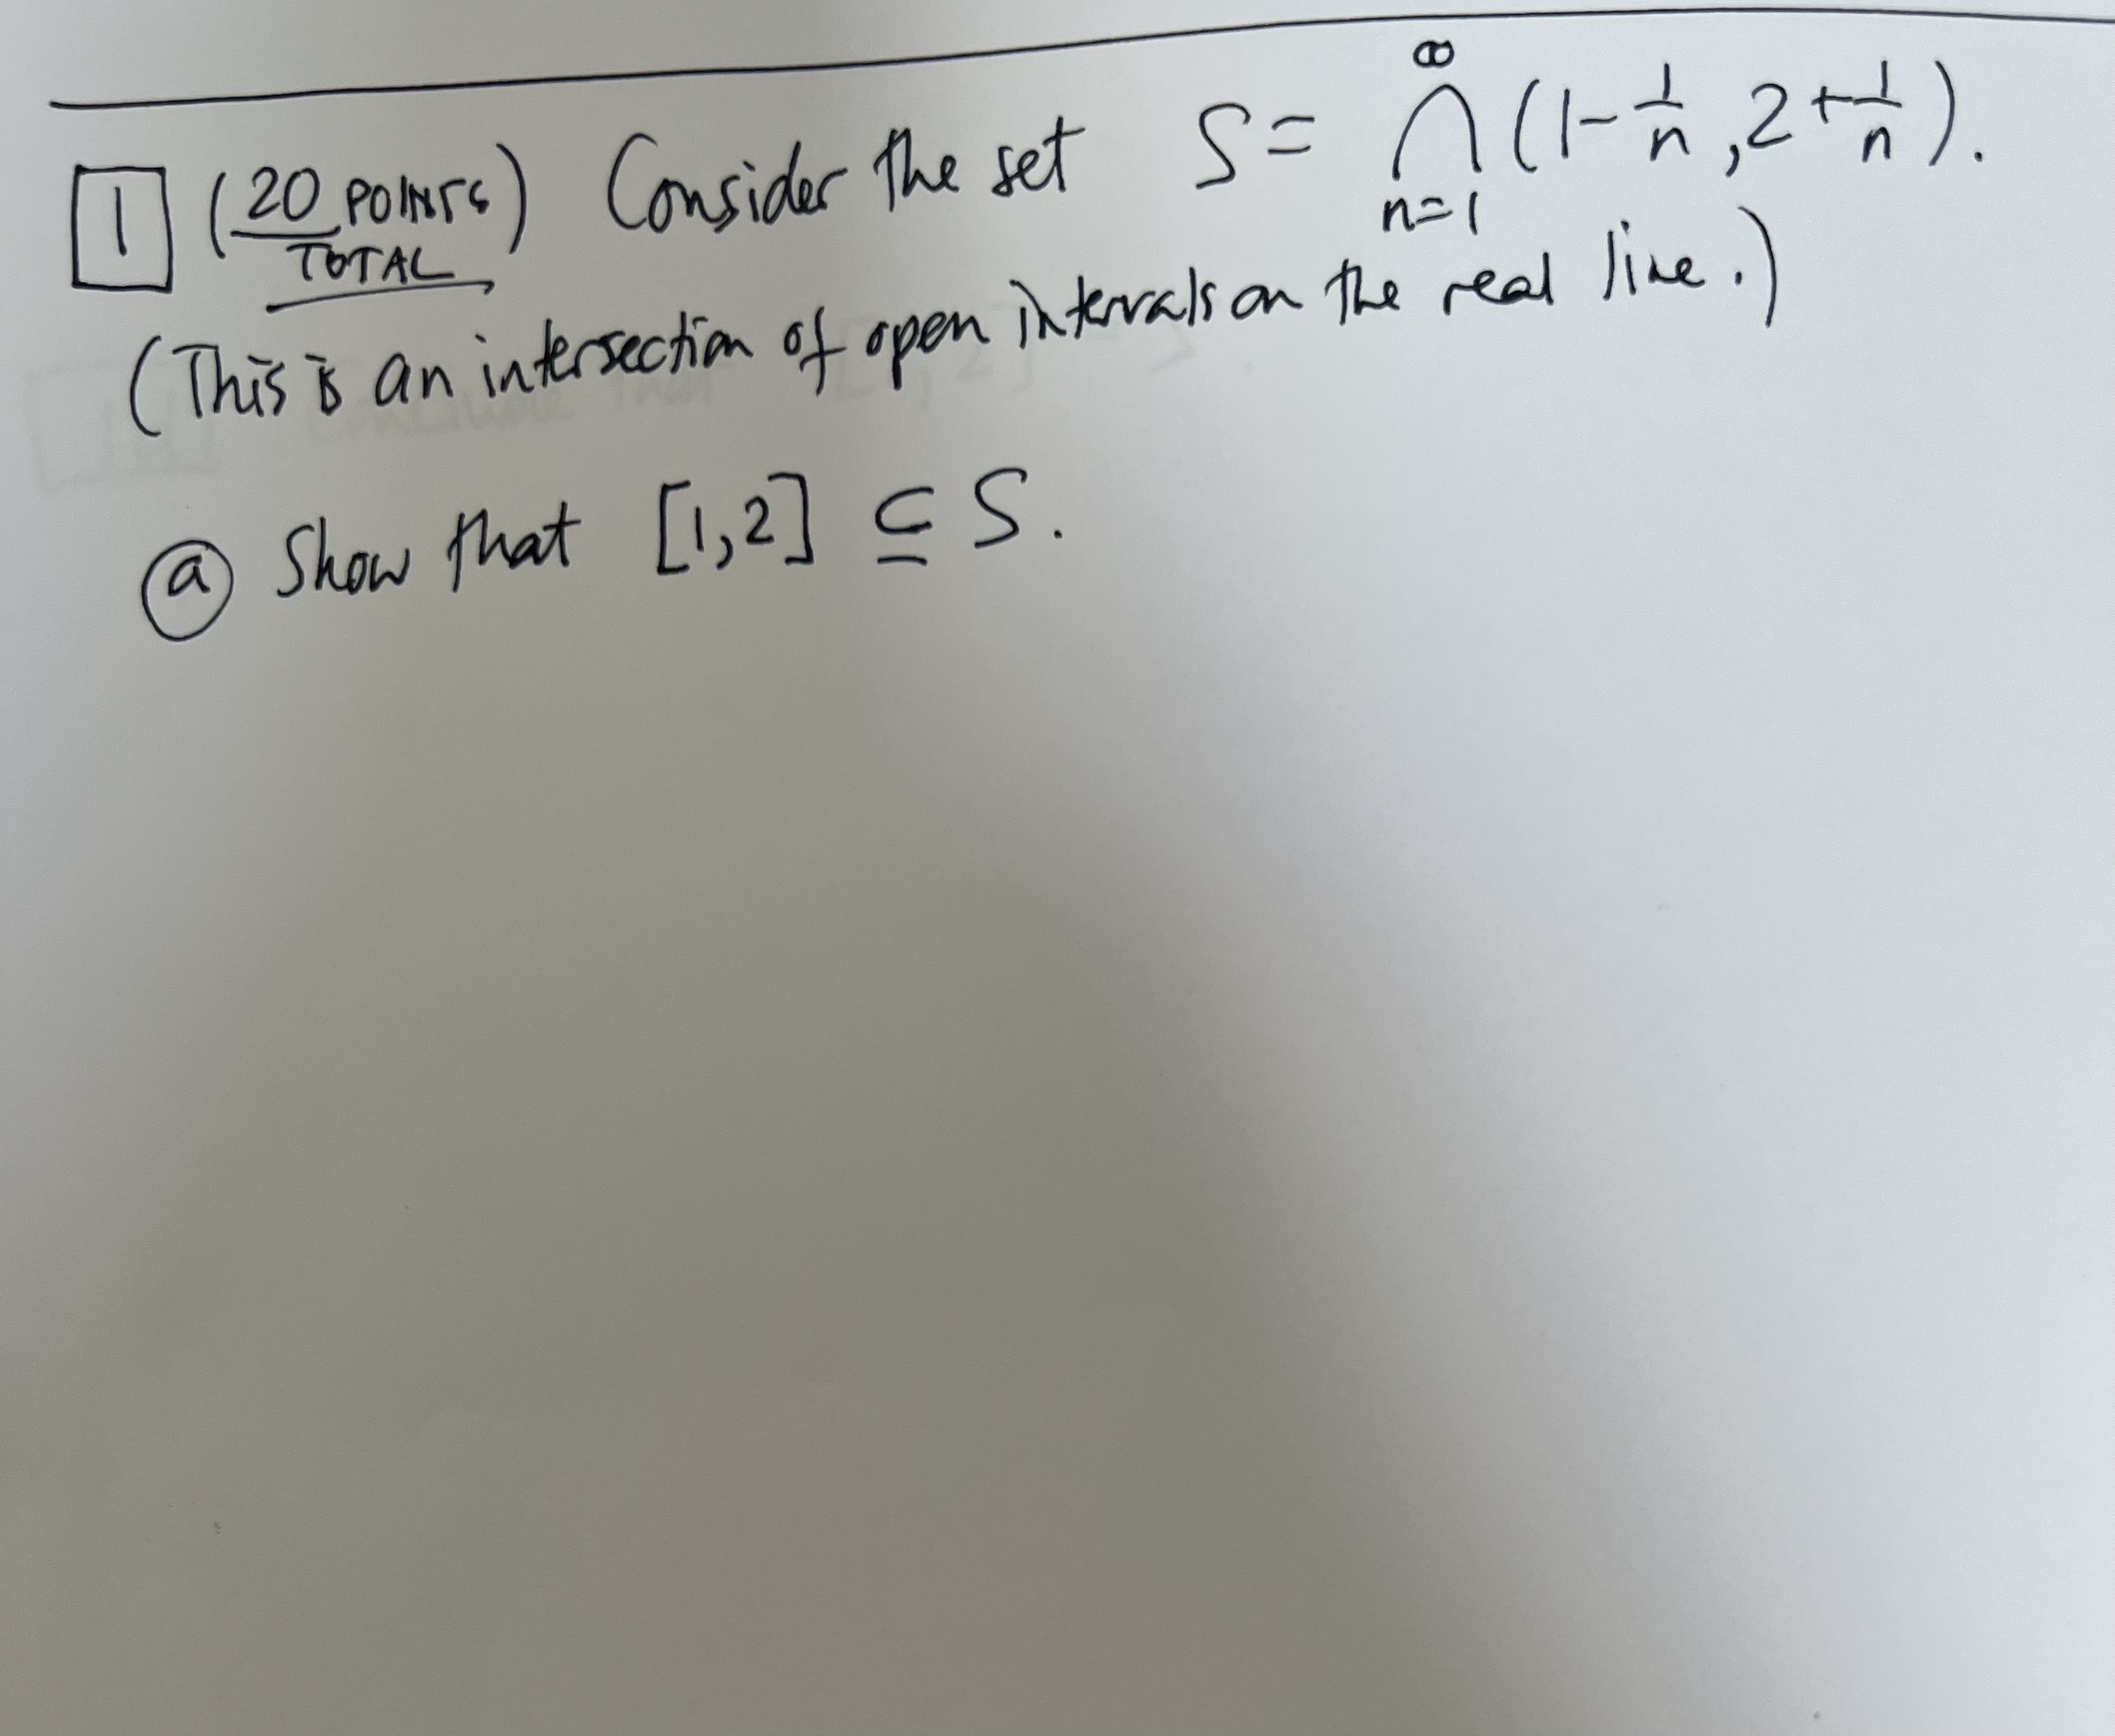 1 (20 POINTS TOTAL) Consider the set S = ∩_{n=1}^{∞} (1 - 1/n, 2 + 1/n).
(This is an intersection of open intervals on the real line.)
(a) Show that [1,2] ⊆ S.